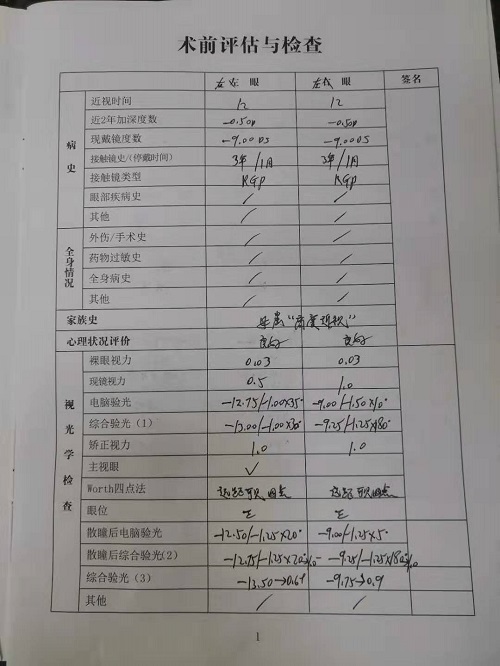 术前评估与检查
眼 眼 签名
病史
近视时间 12 12
近2年加深度数 -0.50D -0.50D
现戴镜度数 -9.00DS -9.00DS
接触镜史/(停戴时间) 3年/1月 3年/1月
接触镜类型 RGP RGP
眼部疾病史 / /
其他 / /
全身情况
外伤/手术史 / /
药物过敏史 / /
全身病史 / /
其他 / /
家族史 母患“高度近视”
心理状况评价 良好 良好
视光学检查
裸眼视力 0.03 0.03
现镜视力 0.5 1.0
电脑验光 -12.75/-1.00×35° -9.00/-1.50×10°
综合验光(1) -13.00/-1.00×30° -9.25/-1.25×180°
矫正视力 1.0 1.0
主视眼 ✓
Worth四点法
眼位
散瞳后电脑验光 -12.50/-1.25×20° -9.00/-1.25×5°
散瞳后综合验光(2) -12.75/-1.25×20° -9.25/-1.25×180°
综合验光(3) -13.50→0.6 -9.75→0.9
其他 / /
1